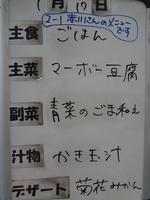 1月17日
2-1 赤川さんのメニューです
主食 ごはん
主菜 マーボー豆腐
副菜 青菜のごま和え
汁物 かき玉汁
デザート 菊花みかん